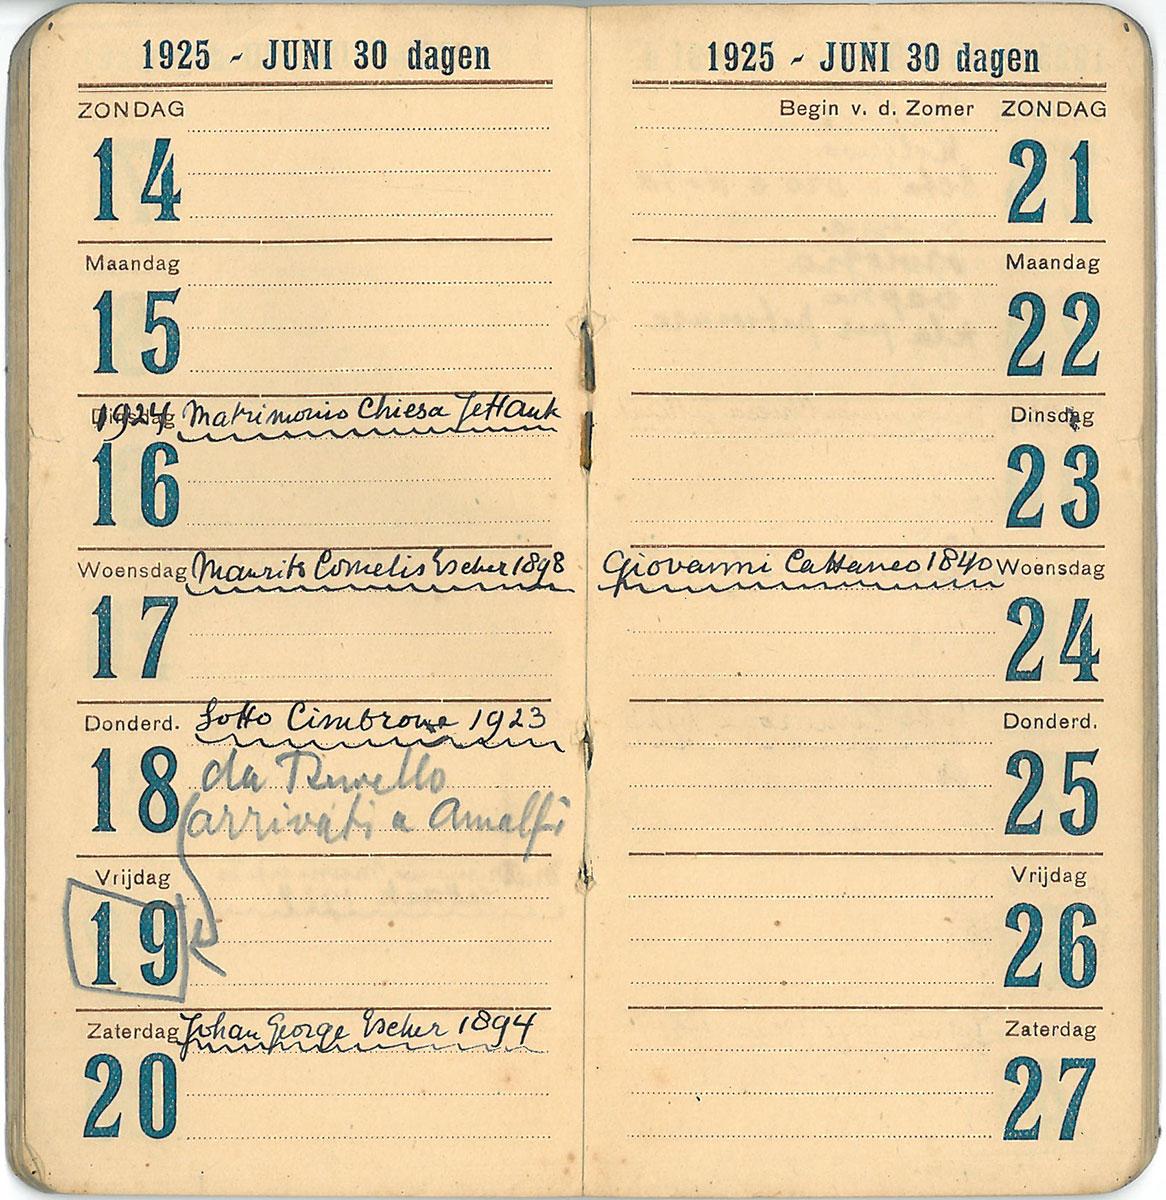 1925 - JUNI 30 dagen
ZONDAG
14
Maandag
15
Dinsdag
1924 Matrimonio Chiesa
16
Woensdag Maurits Cornelis Escher 1898
17
Donderd. Sotto Cimbrone 1923
18 da Ravello
arrivati a Amalfi
Vrijdag
19
Zaterdag Johan George Escher 1894
20
1925 - JUNI 30 dagen
Begin v. d. Zomer ZONDAG
21
Maandag
22
Dinsdag
23
Giovanni Cattaneo 1840 Woensdag
24
Donderd.
25
Vrijdag
26
Zaterdag
27